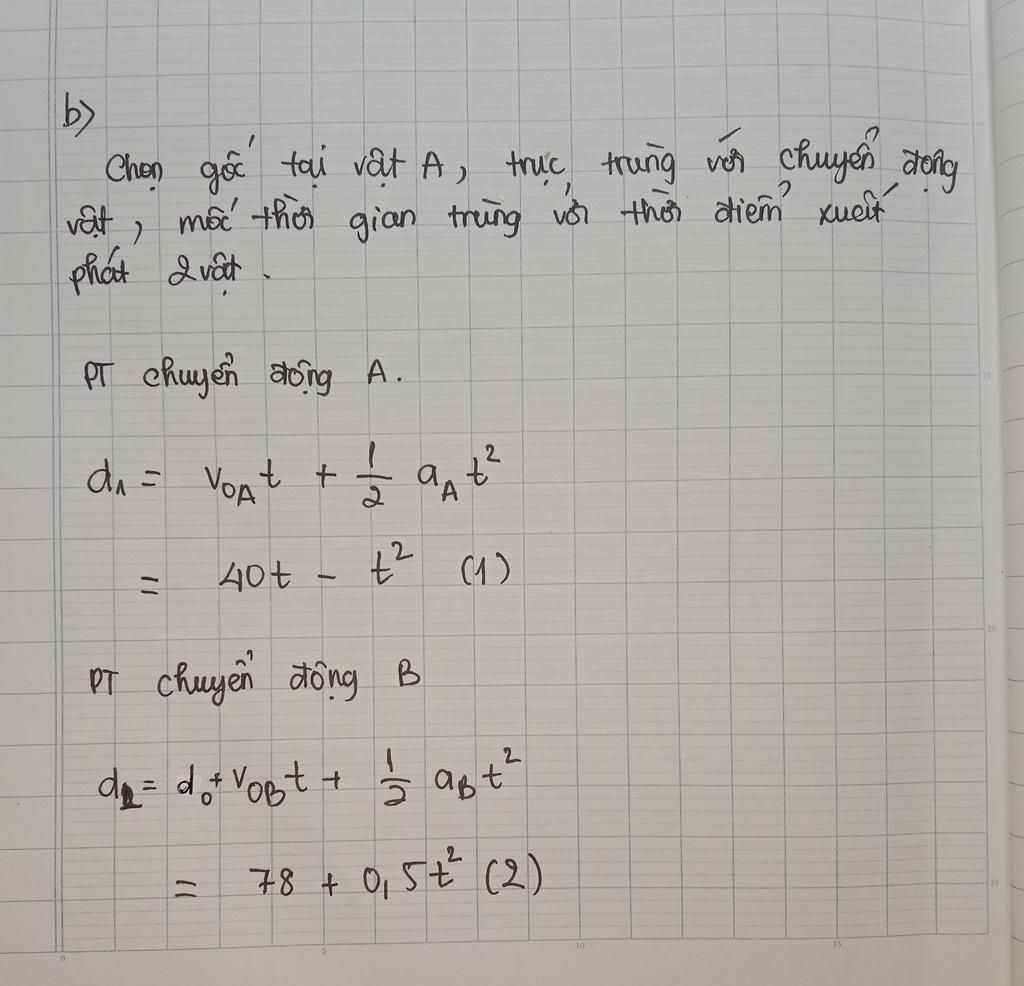 b)
Chọn gốc tại vật A, trục trùng với chuyển động
vật, mốc thời gian trùng với thời điểm xuất
phát 2 vật.
PT chuyển động A.
d₁ = v₀A t + 1/2 aA t²
= 40t - t² (1)
PT chuyển động B
d₂ = d₀ + v₀B t + 1/2 aB t²
= 78 + 0,5t² (2)